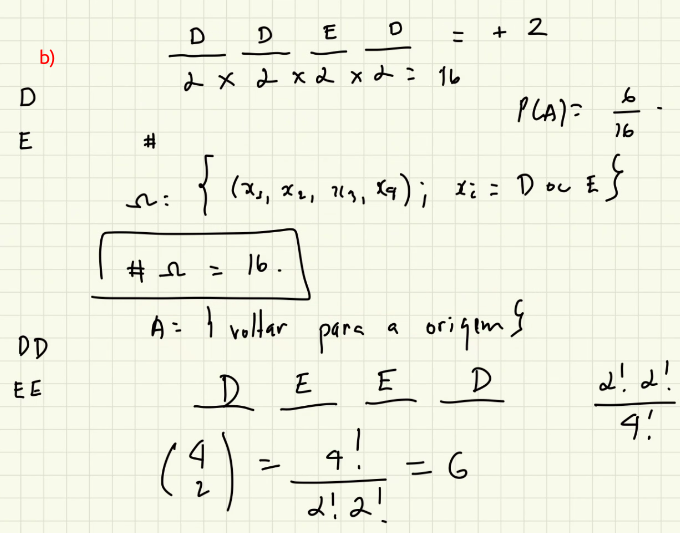 D D E D = + 2
b)
2 x 2 x 2 x 2 = 16
D
P(A) = 6/16 .
E
#
Ω: { (x1, x2, x3, x4); xi = D ou E }
# Ω = 16.
A = { voltar para a origem }
DD
EE
D E E D
2! 2! / 4!
(4 2) = 4! / 2! 2! = 6